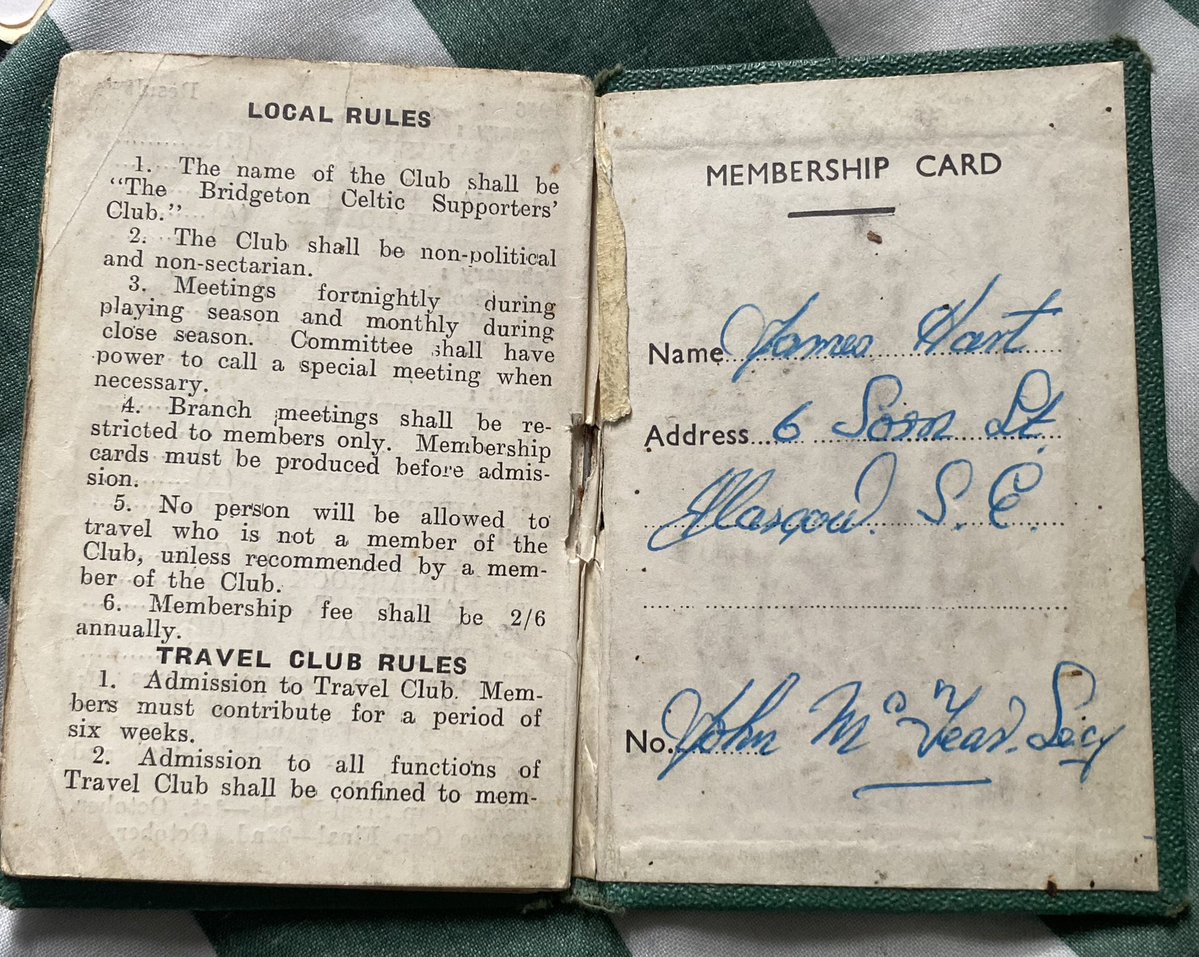 LOCAL RULES
1. The name of the Club shall be
"The Bridgeton Celtic Supporters'
Club."
2. The Club shall be non-political
and non-sectarian.
3. Meetings fortnightly during
playing season and monthly during
close season. Committee shall have
power to call a special meeting when
necessary.
4. Branch meetings shall be re-
stricted to members only. Membership
cards must be produced before admis-
sion.
5. No person will be allowed to
travel who is not a member of the
Club, unless recommended by a mem-
ber of the Club.
6. Membership fee shall be 2/6
annually.
TRAVEL CLUB RULES
1. Admission to Travel Club. Mem-
bers must contribute for a period of
six weeks.
2. Admission to all functions of
Travel Club shall be confined to mem-
MEMBERSHIP CARD
Name James Hart
Address 6 Sorn St.
Glasgow. S. E.
No. John Mc Fear. Secy